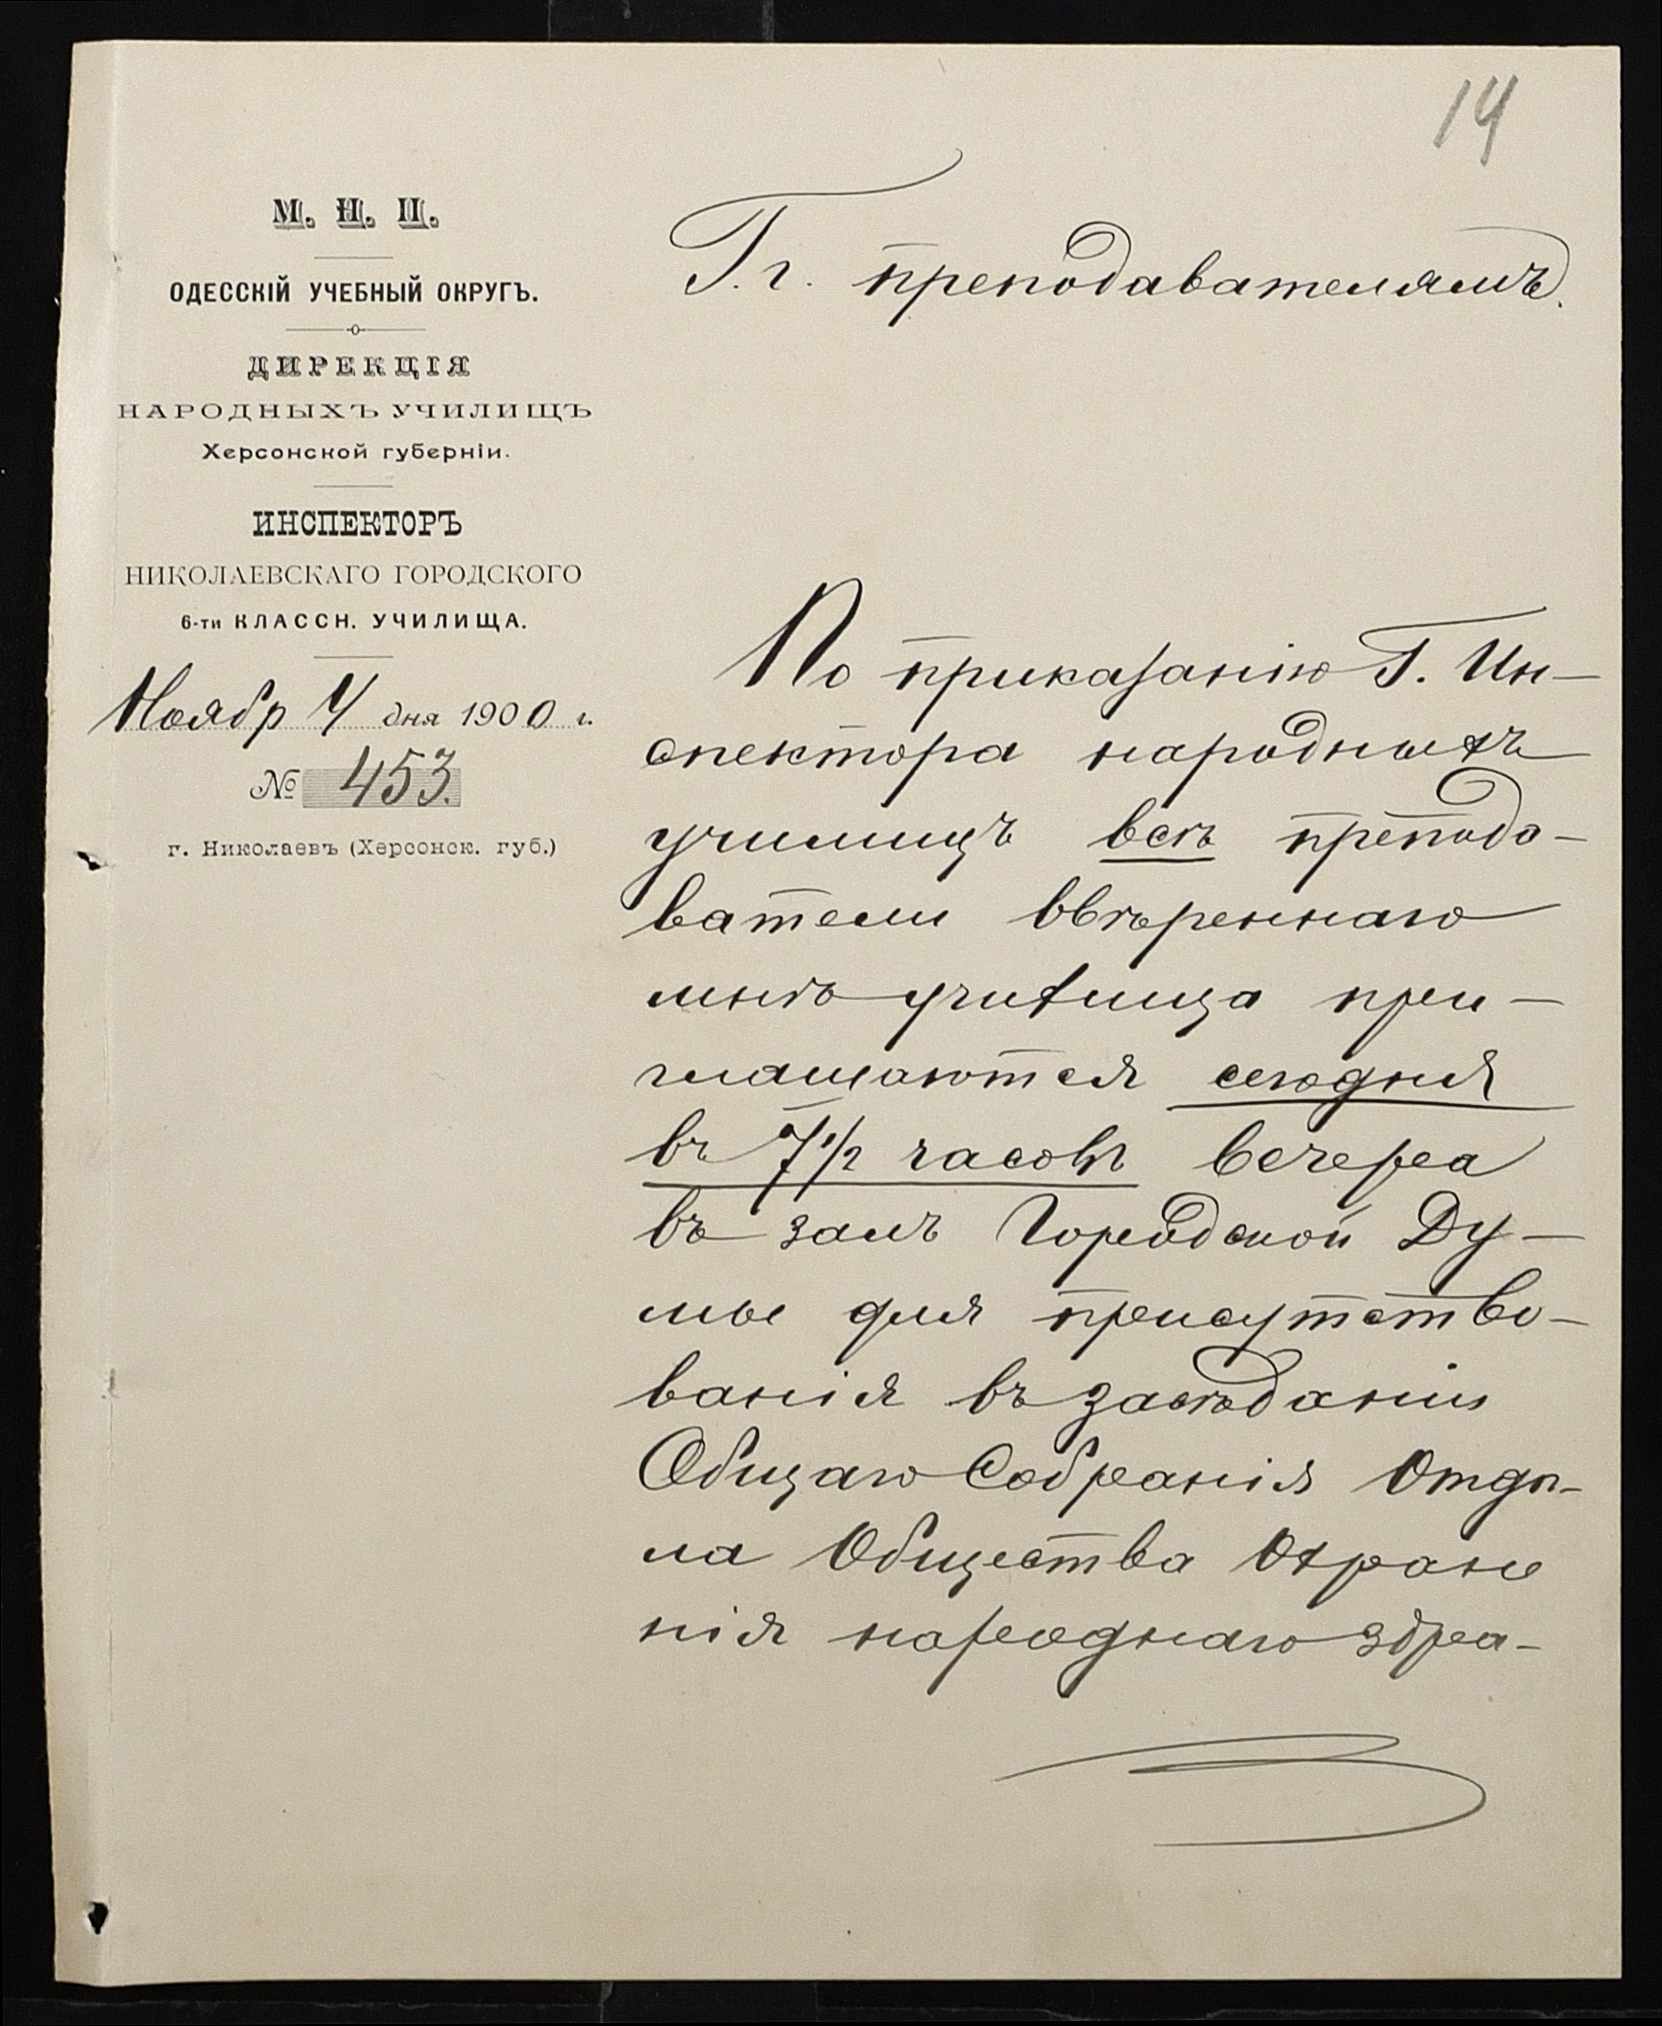 14
М. Н. П.
ОДЕССКІЙ УЧЕБНЫЙ ОКРУГЪ.
ДИРЕКЦІЯ
НАРОДНЫХЪ УЧИЛИЩЪ
Херсонской губерніи.
ИНСПЕКТОРЪ
НИКОЛАЕВСКАГО ГОРОДСКОГО
6-ти КЛАССН. УЧИЛИЩА.
Ноябр 4 дня 1900 г.
№ 453.
г. Николаевъ (Херсонск. губ.)
Г.г. преподавателямъ.
По приказанію Г. Ин-
спектора народныхъ
училищъ всѣ препода-
ватели ввѣреннаго
мнѣ училища при-
глашаются сегодня
въ 7 1/2 часовъ вечера
въ залъ Городской Ду-
мы для присутство-
ванія въ засѣданіи
Общаго Собранія Отдѣ-
ла Общества Охране
нія народнаго здра-